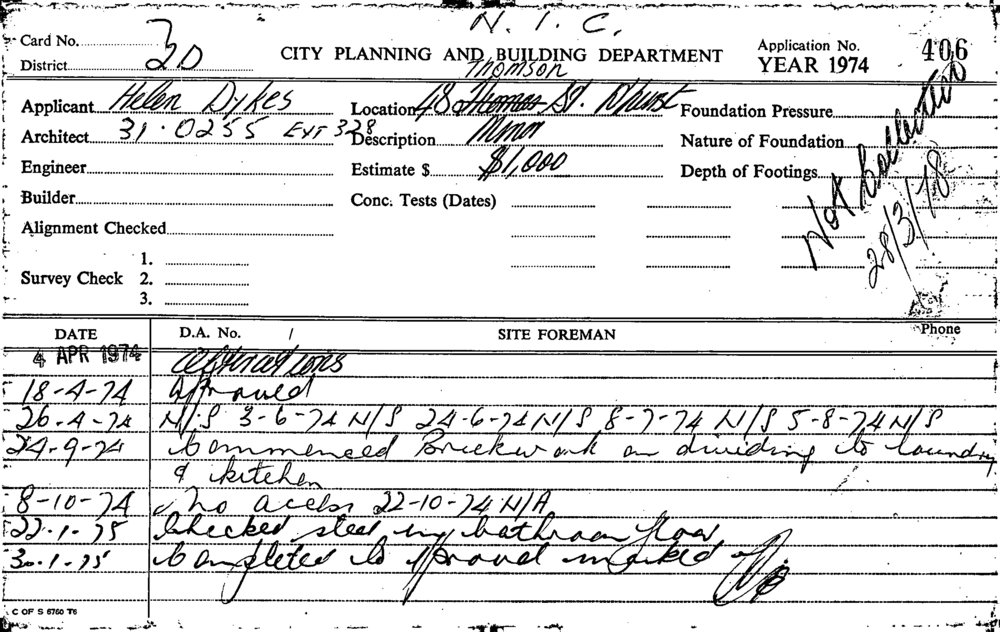 N.I.C.
Card No. 3D
District
CITY PLANNING AND BUILDING DEPARTMENT
Application No. 406
YEAR 1974
Thomson
Applicant Helen Dykes
Location 48 Thomas St. D'hurst
Foundation Pressure
Architect 31·0255 Ext 328
Description Minor
Nature of Foundation
Engineer
Estimate $ $1,000
Depth of Footings
Builder
Conc. Tests (Dates)
Not Collected
28/3/78
Alignment Checked
Survey Check 1.
2.
3.
DATE D.A. No. / SITE FOREMAN Phone
4 APR 1974 Alterations
18-4-74 Approved
26-4-74 N/S 3-6-74 N/S 24-6-74 N/S 8-7-74 N/S 5-8-74 N/S
24-9-74 Commenced Brickwork on dividing to laundry
& kitchen
8-10-74 No acces 22-10-74 N/A
22-1-75 Checked steel in bathroom floor
30-1-75 Completed to approval marked
C OF S 6760 T6